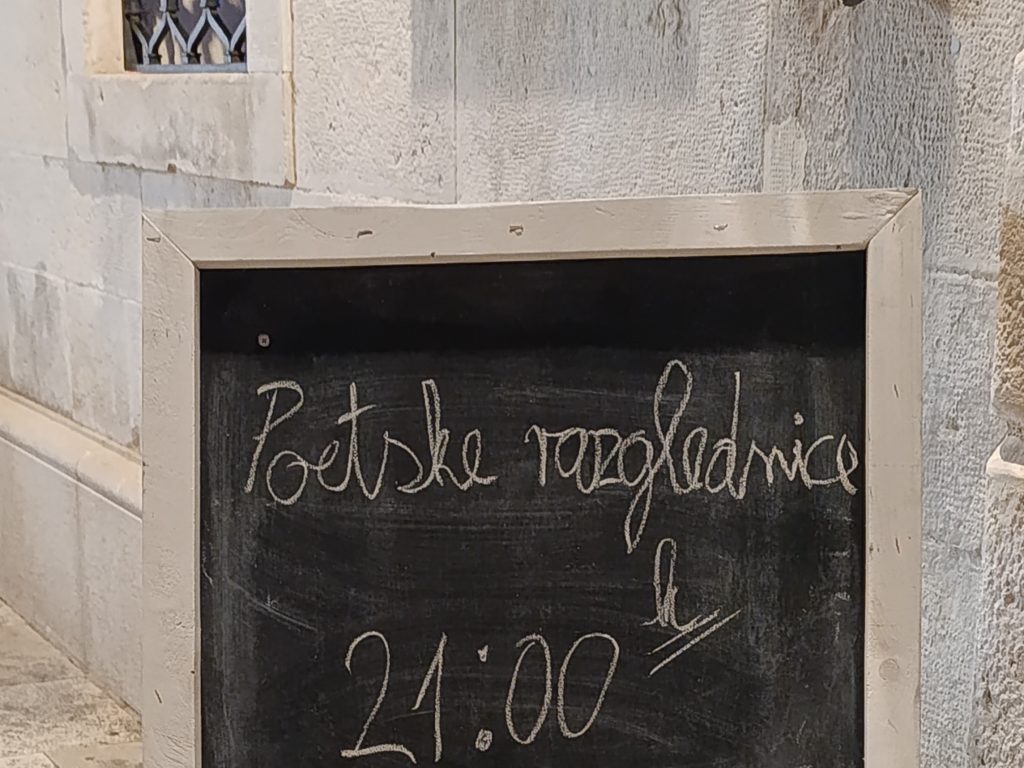 Poetske razglednice
21:00 h